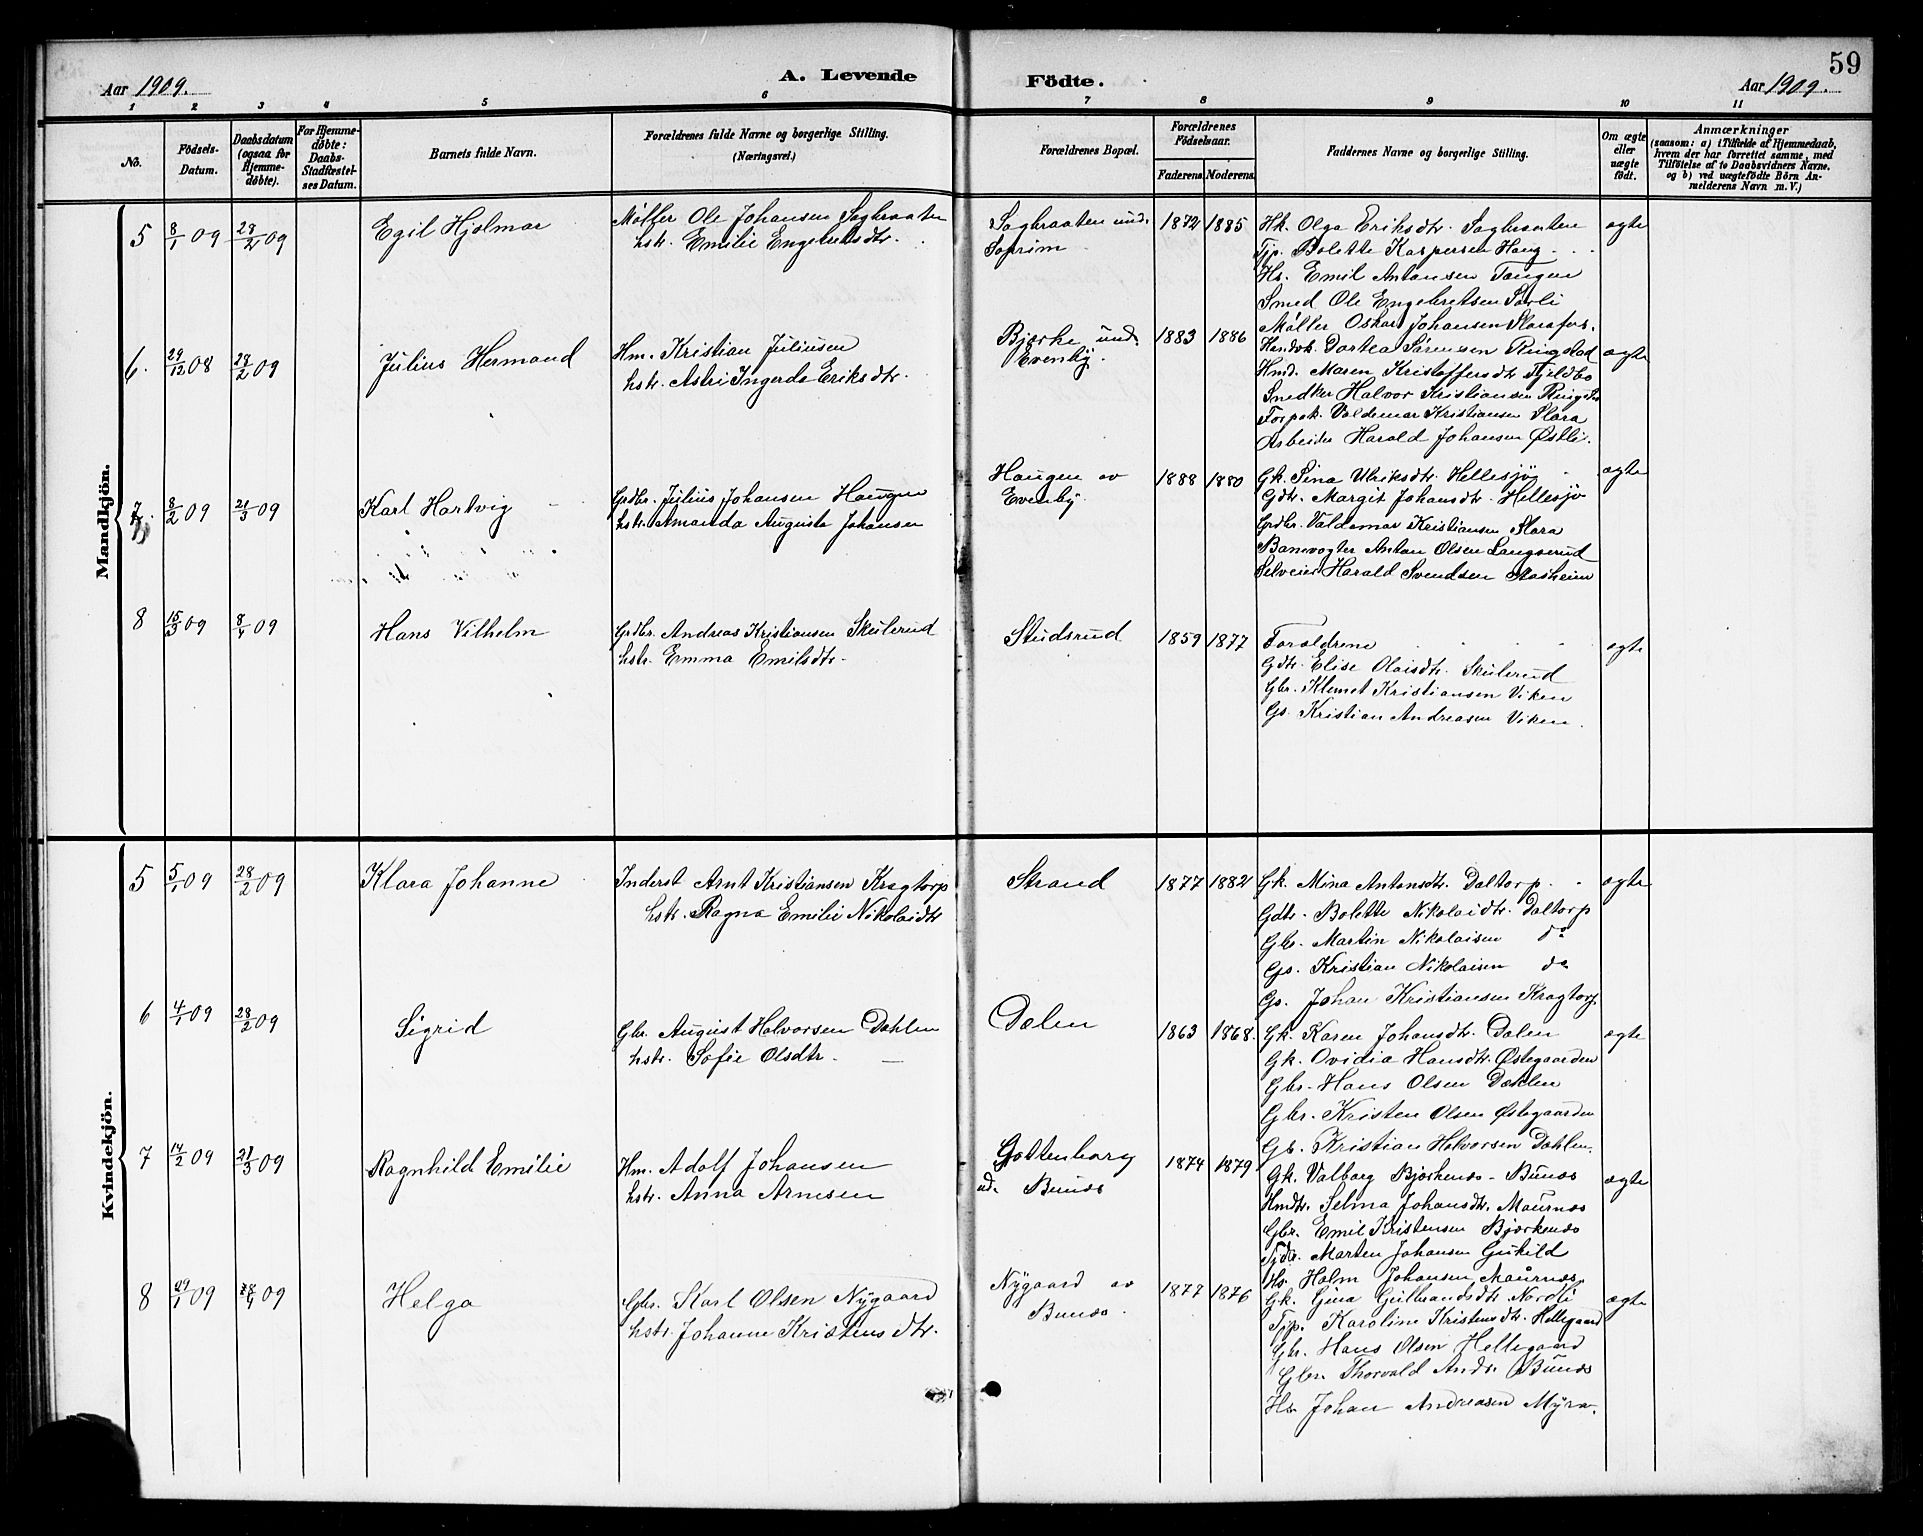 59
Aar 1909. A. Levende Födte. Aar 1909.
1 2 3 4 5 6 7 8 9 10 11
No.
Födsels-Datum.
Daabsdatum (ogsaa for Hjemme-døbte).
For Hjemme-døbte: Daabs-Stadfæstel-ses Datum.
Barnets fulde Navn.
Forældrenes fulde Navne og borgerlige Stilling.
(Næringsvei.)
Forældrenes Bopæl.
Forældrenes Födselsaar.
Faderens Moderens
Faddernes Navne og borgerlige Stilling.
Om ægte eller uægte født.
Anmærkninger
(saasom: a) i Tilfælde af Hjemmedaab,
hvem der har forrettet samme, med
Tilföielse af to Daabsvidners Navne,
og b) ved uægtefödte Börn An-
melderens Navn m. V.)
Mandkjön.
5 8/1 09 28/2 09 Egil Hjalmar
Møller Ole Johansen Sagbraaten
hstr. Emilie Engebretsdtr.
Sagbraaten und.
Soprim
1872 1885
Hk. Olga Eriksdtr. Sagbraaten
Tjp. Bolette Kaspersen Haug
Hs. Emil Antonsen Tangen
Smed Ole Engebretsen Sørli
Møller Oskar Johansen Slorafos.
ægte
6. 29/12 08 28/2 09 Julius Hermand
Hm. Kristian Juliusen
hstr. Astri Ingerda Eriksdtr.
Bjørke und.
Evenby.
1883 1886
Handvk. Dortea Sørensen Ringstad
Hmd. Maren Kristoffersdtr Fjeldbo
Snedker Halvor Kristiansen
Forpak. Valdemar Kristiansen Slora
Arbeider Harald Johansen Østli.
ægte
7. 8/2 09 21/3 09 Karl Hartvig
Grdbr. Julius Johansen Haugen
hstr. Amanda Augusta Johansen
Haugen av
Evenby
1888 1880
Gk. Sina Ulriksdtr. Hellesjø
Gdtr. Margit Johansdtr. Hellesjø
Grdbr. Valdemar Kristiansen Slora
Banevogter Anton Olsen Langserud
Selveier Harald Svendsen Aasheim
ægte
8 15/3 09 8/4 09 Hans Vilhelm
Grdbr. Andreas Kristiansen Skulerud
hstr. Emma Emilsdtr.
Studsrud
1859 1877
Foraldrene
Gdtr. Elise Olaisdtr. Skulerud
Gbr. Klemet Kristiansen Viken
Gs. Kristian Andreasen Viken.
ægte
Kvindekjön.
5 5/1 09 28/2 09 Klara Johanne
Inderst Arnt Kristiansen Kragtorp
hstr. Ragna Emilie Nikolaidtr
Strand
1877 1882
Gk. Mina Antonsdtr. Daltorp.
Gdtr. Bolette Nikolaidtr. Daltorp
Gbr. Martin Nikolaisen do
Gs. Kristian Nikolaisen do
Gs. Johan Kristiansen Kragtorp.
ægte
6 4/1 09 28/2 09 Sigrid
Gbr. August Halvorsen Dahlen
hstr. Sofie Olsdtr.
Dalen
1863 1868.
Gk. Karen Johansdtr. Dalen
Gk. Ovidia Hansdtr. Østegaarden
Gbr. Hans Olsen Dahlen
Gbr. Kristen Olsen Østegaarden
Gb. Kristian Halvorsen Dahlen.
ægte
7 14/2 09 21/3 09 Ragnhild Emilie
Hm. Adolf Johansen
hstr. Anna Arnesen
Gottenborg
ud. Bunæs
1874 1879
Gk. Valborg Bjørkenæs - Bunæs
Hmdtr. Selma Johansdtr. Maurnæs
Gbr. Emil Kristensen Bjørkenæs
Marten Johansen Gukild
Hs. Holm Johansen Maurnæs.
ægte
8 29/1 09 18/4 09 Helga
Gbr. Karl Olsen Nygaard
hstr. Johanne Kristiansdtr.
Nygaard av
Bunæs.
1877 1876
Gk. Gina Gulbrandsdtr Nordli
Tjp. Karoline Kristensdtr. Hellegaard
Gbr. Hans Olsen Hellegaard
Gbr. Thorvald Andr. Bunæs
Hs. Johan Andreasen Myra.
ægte